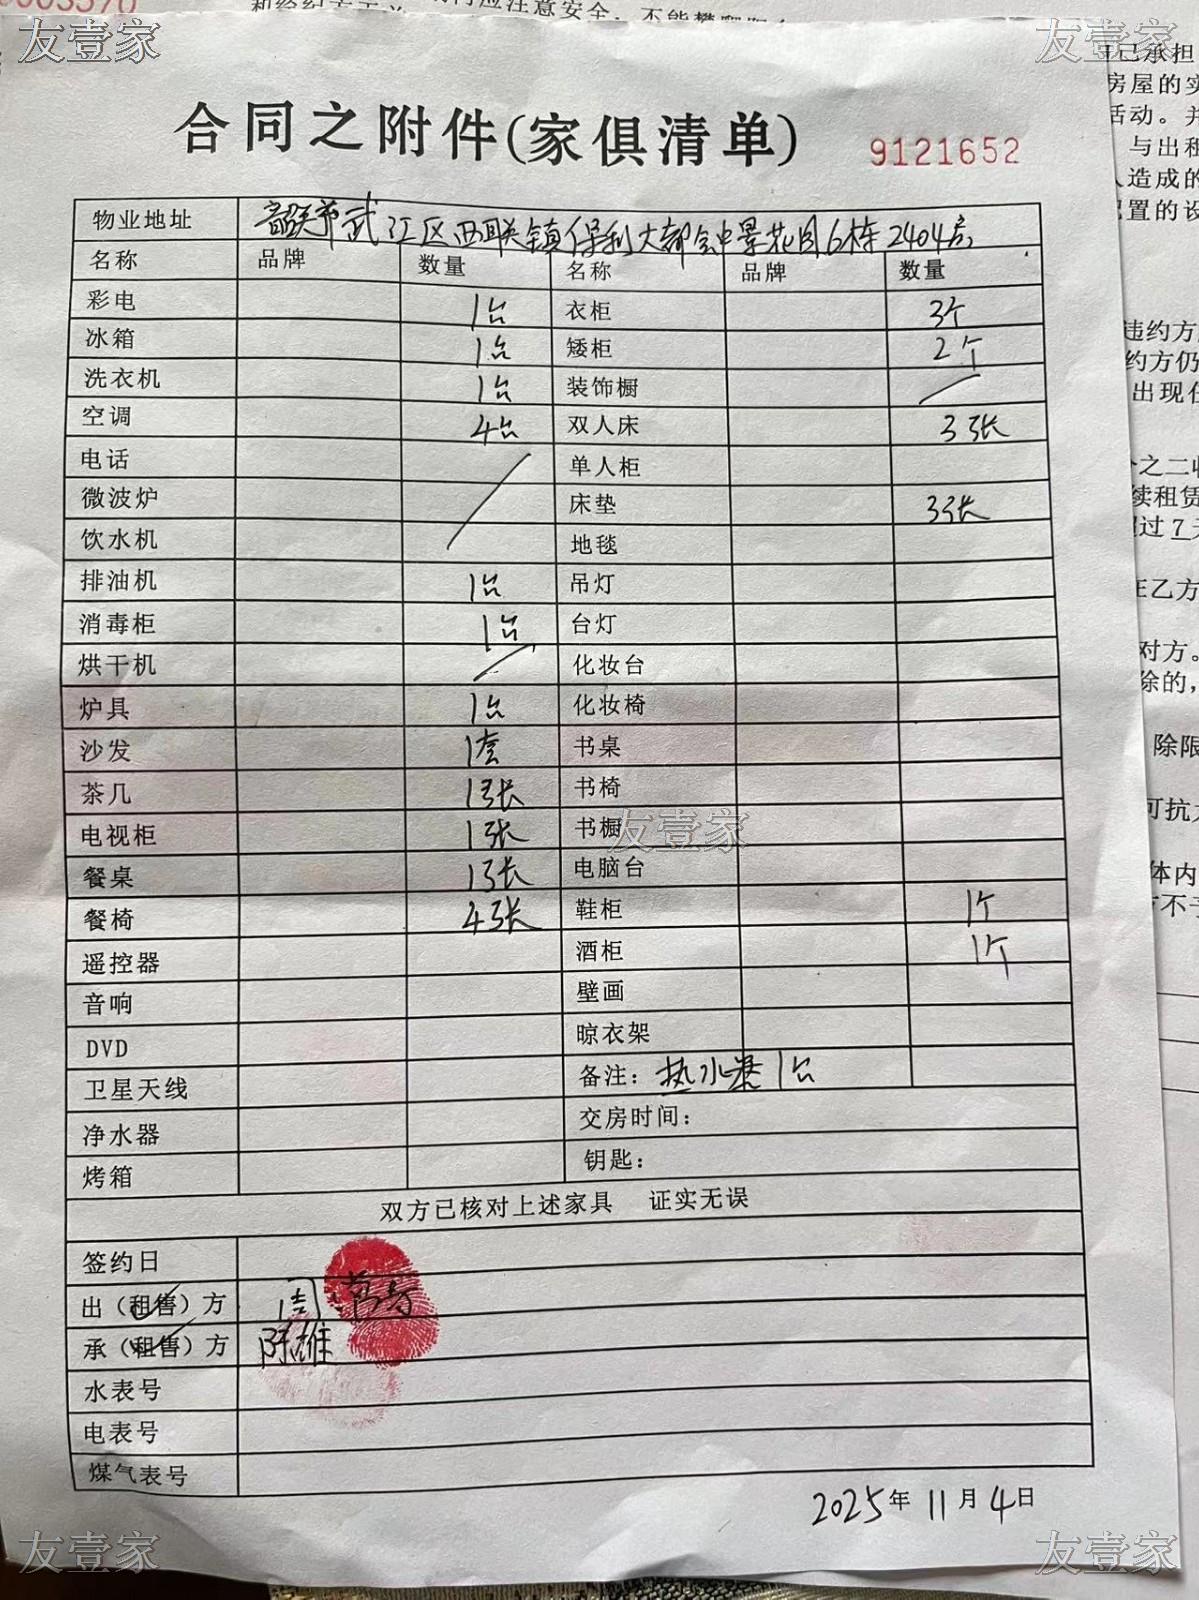 友壹家
友壹家
合同之附件(家俱清单)
9121652
物业地址 韶关市武江区西联镇保利大都会中景花园6栋2404房
名称 品牌 数量 名称 品牌 数量
彩电 1台 衣柜 3个
冰箱 1台 矮柜 2个
洗衣机 1台 装饰橱
空调 4台 双人床 3张
电话 单人柜
微波炉 床垫 3张
饮水机 地毯
排油机 1台 吊灯
消毒柜 1台 台灯
烘干机 化妆台
炉具 1台 化妆椅
沙发 1套 书桌
茶几 1张 书椅
电视柜 1张 书橱
友壹家
餐桌 1张 电脑台
餐椅 4张 鞋柜 1个
遥控器 酒柜 1个
音响 壁画
DVD 晾衣架
卫星天线 备注：热水器1台
净水器 交房时间：
烤箱 钥匙：
双方已核对上述家具 证实无误
签约日
出（租售）方 周
承（租售）方 陈雄
水表号
电表号
煤气表号
2025年11月4日
友壹家
友壹家
己承担
房屋的实
活动。并
与出租
造成的
配置的设
违约方
约方仍
出现任
分之二
续租赁
超过7天
在乙方
对方。
除的，
除限
可抗力
体内
方不